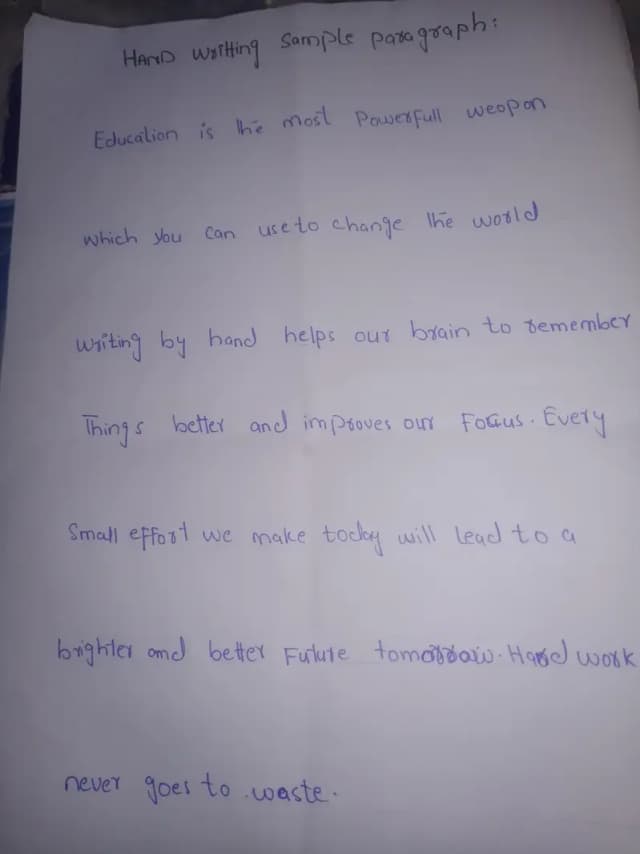 HAND writing sample paragraph:
Education is the most powerfull weopon
which you can use to change the world
writing by hand helps our brain to remember
Things better and improves our Focus. Every
Small effort we make today will lead to a
brighter and better Future tomorrow. Hard work
never goes to waste.